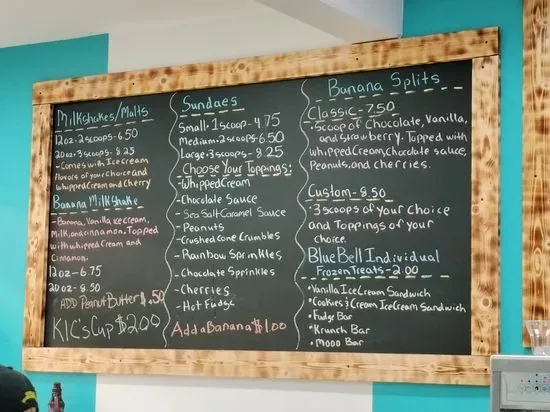 Milkshakes/Malts
12oz-2scoops-6.50
20oz-3scoops-8.25
-Comes with Ice cream
flavors of your choice and
whipped cream and cherry
Banana Milkshake
-Banana, Vanilla ice cream,
Milk, and cinnamon. Topped
with whipped cream and
Cinnamon.
12oz-6.75
20oz-8.50
ADD Peanut Butter $.50
KIC's Cup $2.00
Sundaes
Small-1scoop-4.75
Medium-2scoops-6.50
Large-3scoops-8.25
Choose Your Toppings:
-Whipped Cream
-Chocolate Sauce
-Sea Salt Caramel Sauce
-Peanuts
-Crushed Cone Crumbles
-Rainbow Sprinkles
-Chocolate Sprinkles
-Cherries
-Hot Fudge
Add a Banana $1.00
Banana Splits
Classic-7.50
•Scoop of Chocolate, Vanilla,
and Strawberry. Topped with
whipped Cream, chocolate sauce,
Peanuts, and cherries.
Custom-8.50
•3 scoops of your choice
and Toppings of your
choice.
Blue Bell Individual
Frozen Treats-2.00
•Vanilla Ice Cream Sandwich
•Cookies & Cream Ice Cream Sandwich
•Fudge Bar
•Krunch Bar
•Mooo Bar